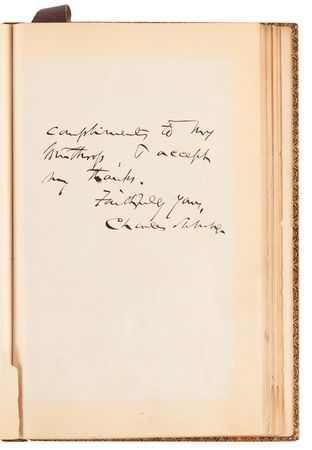 compliments to Mr
Winthrop, & accept
my thanks.
Faithfully Yours,
Charles Sumner.